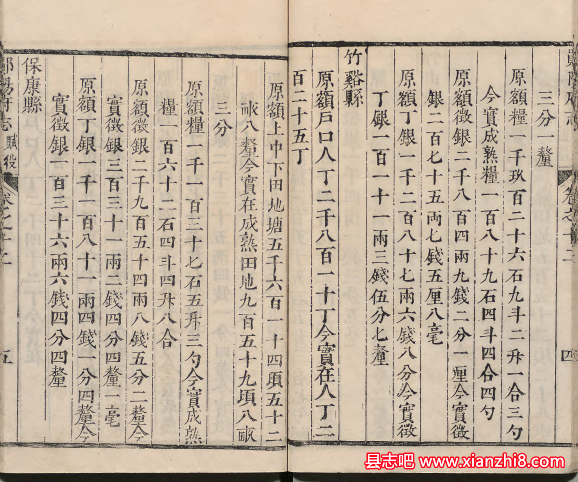 三分一釐
原額糧一千玖百二十六石九斗二升一合三勺
今實成熟糧一百七十九石四斗四合四勺
原額徵銀二千八百四兩九錢二分一厘今實徵
銀二百七十五両七錢五厘八毫
原額丁銀一千二百六十七兩六錢八分今實徵
丁銀一百一十一兩三錢伍分七釐
竹谿縣
原額戸口人丁二千八百一十丁今實在人丁二
百二十五丁
原額上中下田地塘五千六百一十四頃五十二
畝八釐今實在成熟田地九百五十九頃八畝
三分
原額糧一千一百三十七石五升三勺今實成熟
糧一百六十二石四斗四升八合
原額徵銀二千九百五十四兩八錢五分二釐今
實徵銀三百三十一兩二錢四分四釐一毫
原額丁銀一千一百八十一兩四錢二分四釐今
實徵銀一百三十六兩六錢四分四釐
保康縣
鄖陽府志
卷之十二
四
鄖陽府志
賦役
卷之十二
五
县志吧
www.xianzhi8.com